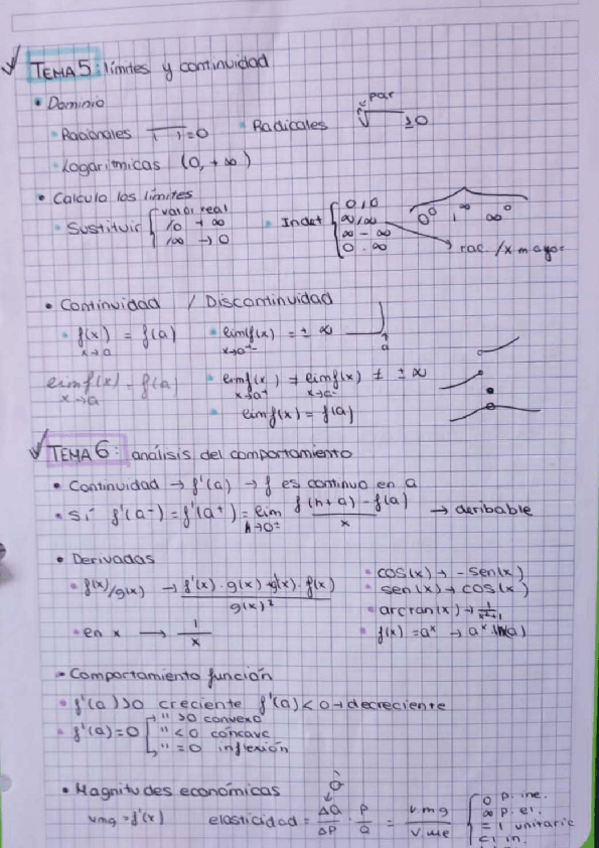 TEMA 5: límites y continuidad
• Dominio
• Racionales ( ) = 0 • Radicales par √ ≥0
• Logarítmicas (0, +∞)
• Calculo los límites
• Sustituir { valor real /0 → ∞ /∞ → 0
• Indet { 0/0 ∞/∞ ∞ - ∞ 0 · ∞ 0⁰ 1^∞ ∞⁰
→ rac /x mayor
• Continuidad / Discontinuidad
• f(x) x→a = f(a) • lim f(x) = ± ∞ a
lim f(x) = f(a) x→a • lim f(x) x→a⁺ ≠ lim f(x) x→a⁻ ≠ ± ∞
• lim f(x) = f(a)
TEMA 6: análisis del comportamiento
• Continuidad → f'(a) → f es continuo en a
• Si f'(a⁻) = f'(a⁺) = lim h→0 f(h+a) - f(a) / x → deribable
• Derivadas
• f(x)/g(x) → f'(x) · g(x) - g'(x) · f(x) / g(x)²
• cos(x) → -sen(x)
• sen(x) → cos(x)
• arcran(x) → 1/x²+1
• ln x → 1/x • f(x) = aˣ → aˣ ln(a)
• Comportamiento función
• f'(a) > 0 creciente f'(a) < 0 → decreciente
• f'(a) = 0 { '' > 0 convexo
'' < 0 cóncave
'' = 0 inflexión
• Magnitudes económicas
vmg = f'(x) elasticidad = ΔQ/ΔP · P/Q = v.mg/v.me { 0 p. ine.
∞ p. el.
= 1 unitaric
< 1 in.